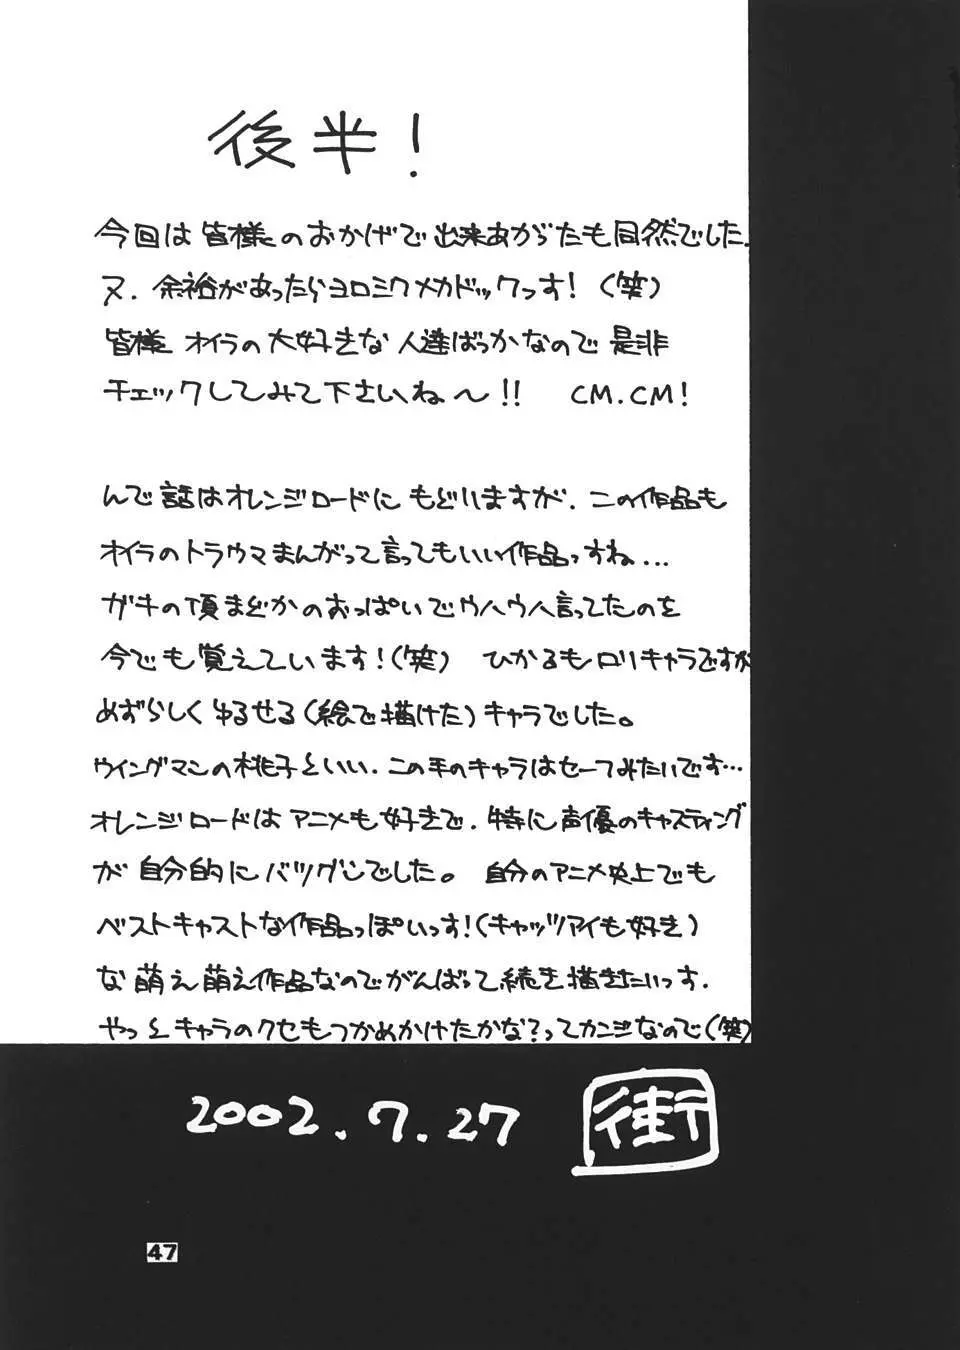 後半!
今回は皆様のおかげで出来あがったも同然でした.
又.余裕があったらヨロミクメカドックっす!(笑)
皆様 オイラの大好きな人達ばっかなので是非
チェックしてみて下さいね〜!! CM.CM!
んで話はオレンジロードにもどいますが.この作品も
オイラのトラウマまんがって言ってもいい作品っすね...
ガキの頃まどかのおっぱいでウハウハ言ってたのを
今でも覚えています!(笑) ひかるもロリキャラですが
めずらしくゆるせる(絵で描けた)キャラでした。
ウイングマンの桃子といい.この手のキャラはセーフみたいです…
オレンジロードはアニメも好きで.特に声優のキャスティング
が自分的にバツグンでした。自分のアニメ史上でも
ベストキャストな作品っぽいっす!(キャッツアイも好き)
な萌え萌え作品なのでがんばって続き描きたいっす.
やっとキャラのクセもつかめかけたかな?ってカンジなので(笑)
2002.7.27
街
47